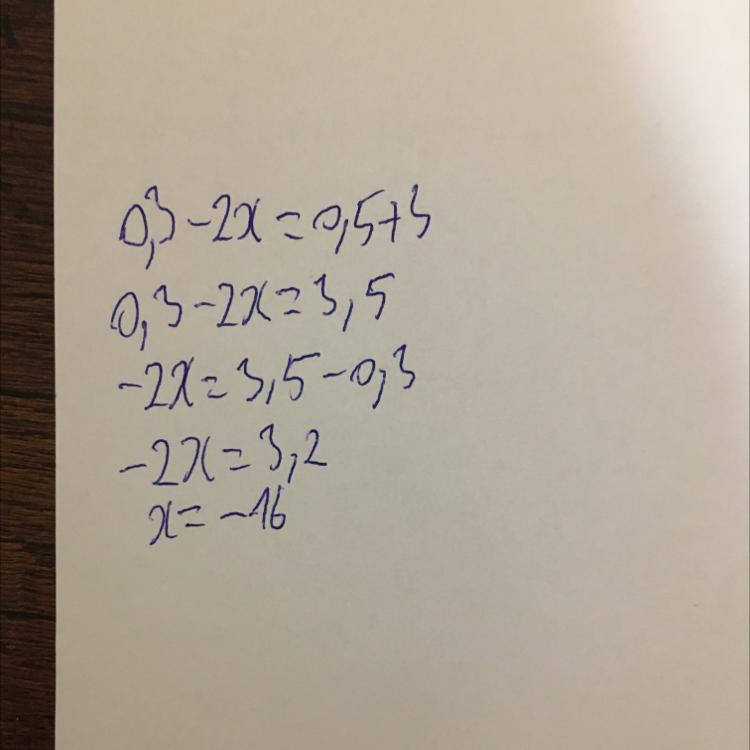 0,3-2x=0,5+3
0,3-2x=3,5
-2x=3,5-0,3
-2x=3,2
x=-16